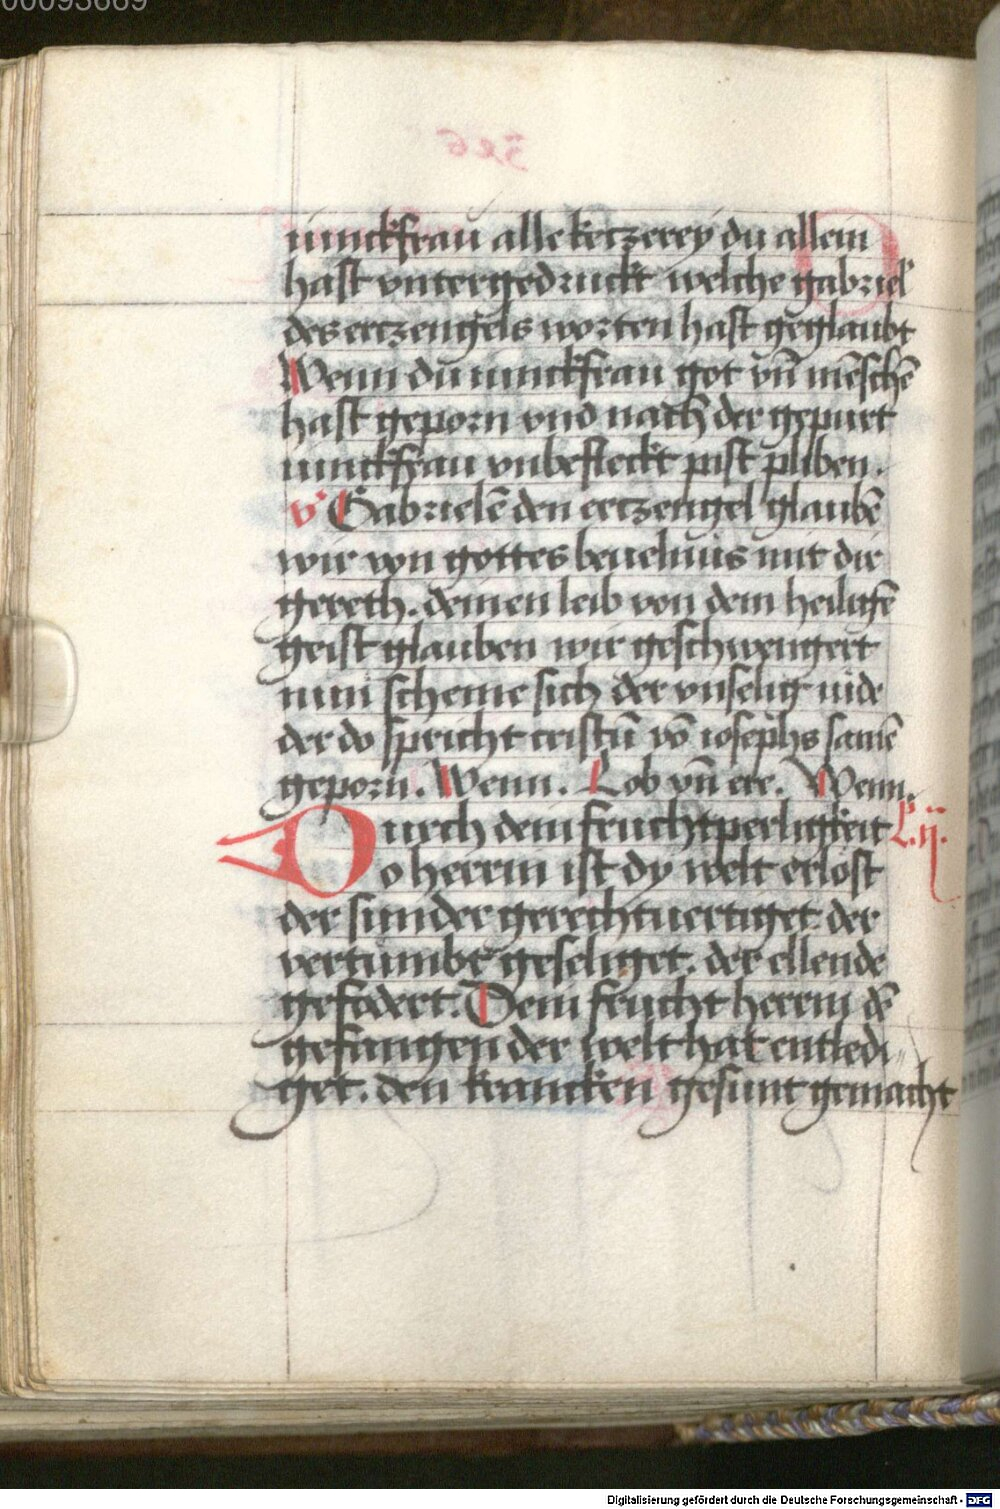 00093669
iunckfrau alle ketzerey du allein
hast vntergedruckt welche gabriel
des ertzengels worten hast geglaubt
Wenn du iunckfrau got vn̄ mēschē
hast geporn vnd nach der gepurt
iunckfrau vnbefleckt pist pliben.
v̉ Gabrielē den ertzengel glaubē
wir von gottes beuelnus mit dir
gereth. deinen leib von dem heiligē
geist glauben wir geschwengert
nun scheme sich der vnselig iude
der do spricht cristū vō iosephs samē
geporn. Wenn. Lob vn̄ ere. Wenn.
Durch dein fruchtperligkeit L.ij.
o herrin ist dy welt erlost
der sunder gerechtuertiget. der
vertumbt geseliget. der ellende
gefodert. Dein frucht herrin dē
gefangen der welt hat entledi
get. den krancken gesunt gemacht
Digitalisierung gefördert durch die Deutsche Forschungsgemeinschaft - DFG